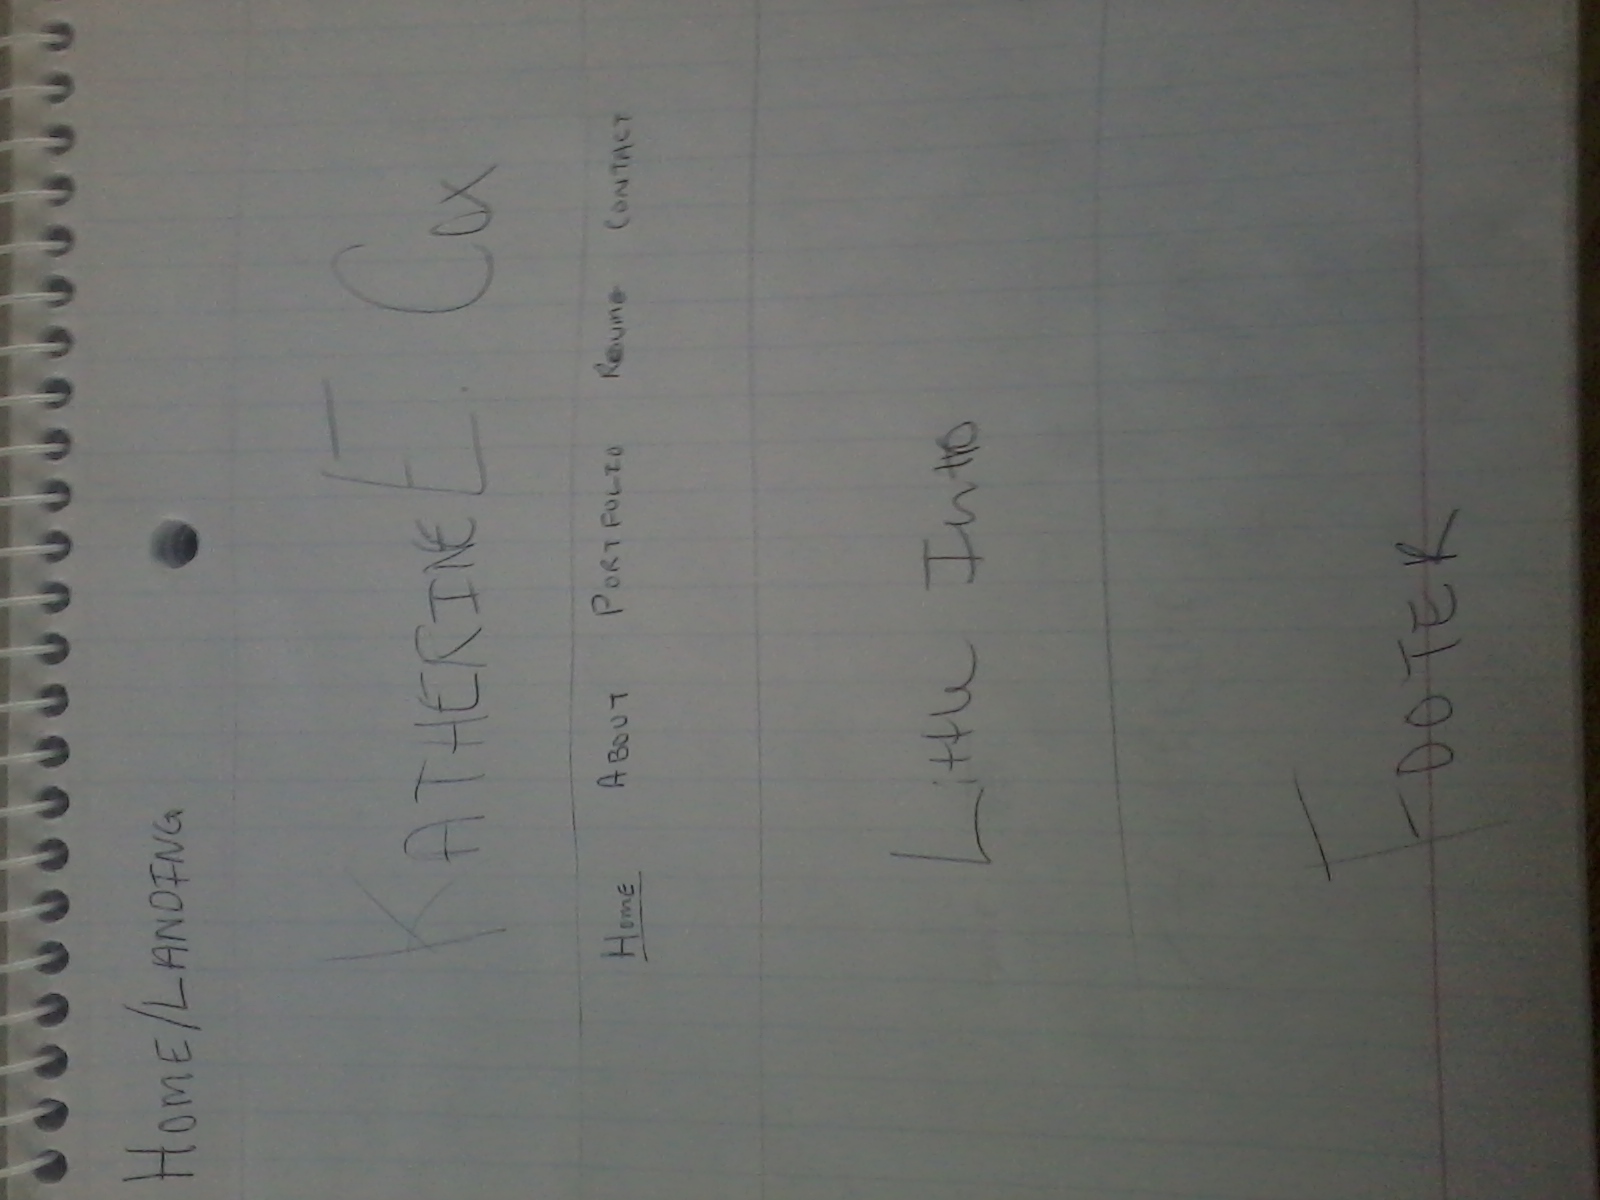 HOME/LANDING
KATHERINE E. COX
HOME ABOUT PORTFOLIO RESUME CONTACT
Little Intro
FOOTER